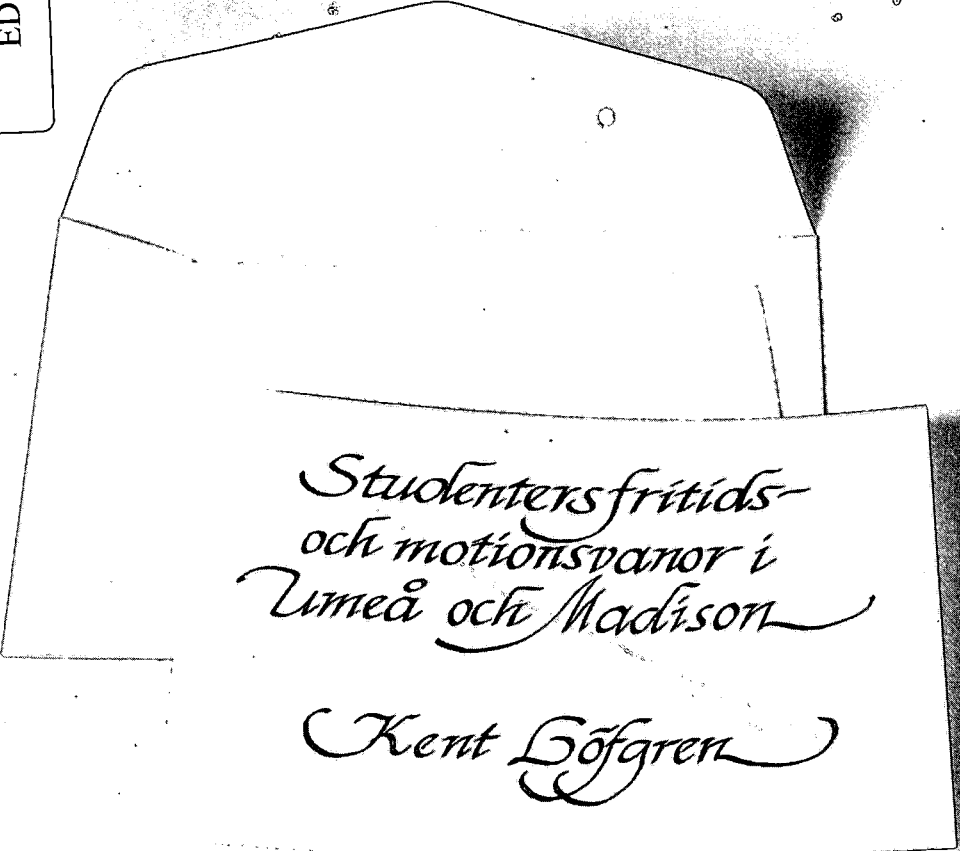 ED
Studenters fritids-
och motionsvanor i
Umeå och Madison
Kent Löfgren